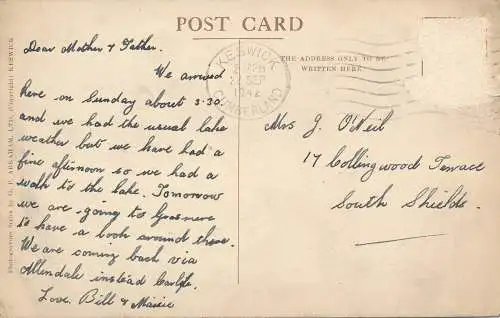 POST CARD
Dear Mother & Father.
We arrived
here on Sunday about 3.30.
and we had the usual lake
weather but we have had a
fine afternoon so we had a
walk to the lake. Tomorrow
we are going to Grasmere
to have a look around there.
We are coming back via
Allendale instead Carlisle.
Love. Bill &
THE ADDRESS ONLY TO BE
WRITTEN HERE
KESWICK
SEP
CUMBERLAND
Mrs J. O'Neil
17 Collingwood Terrace
South Shields.
G. P. ABRAHAM, LTD. (Copyright) KESWICK.